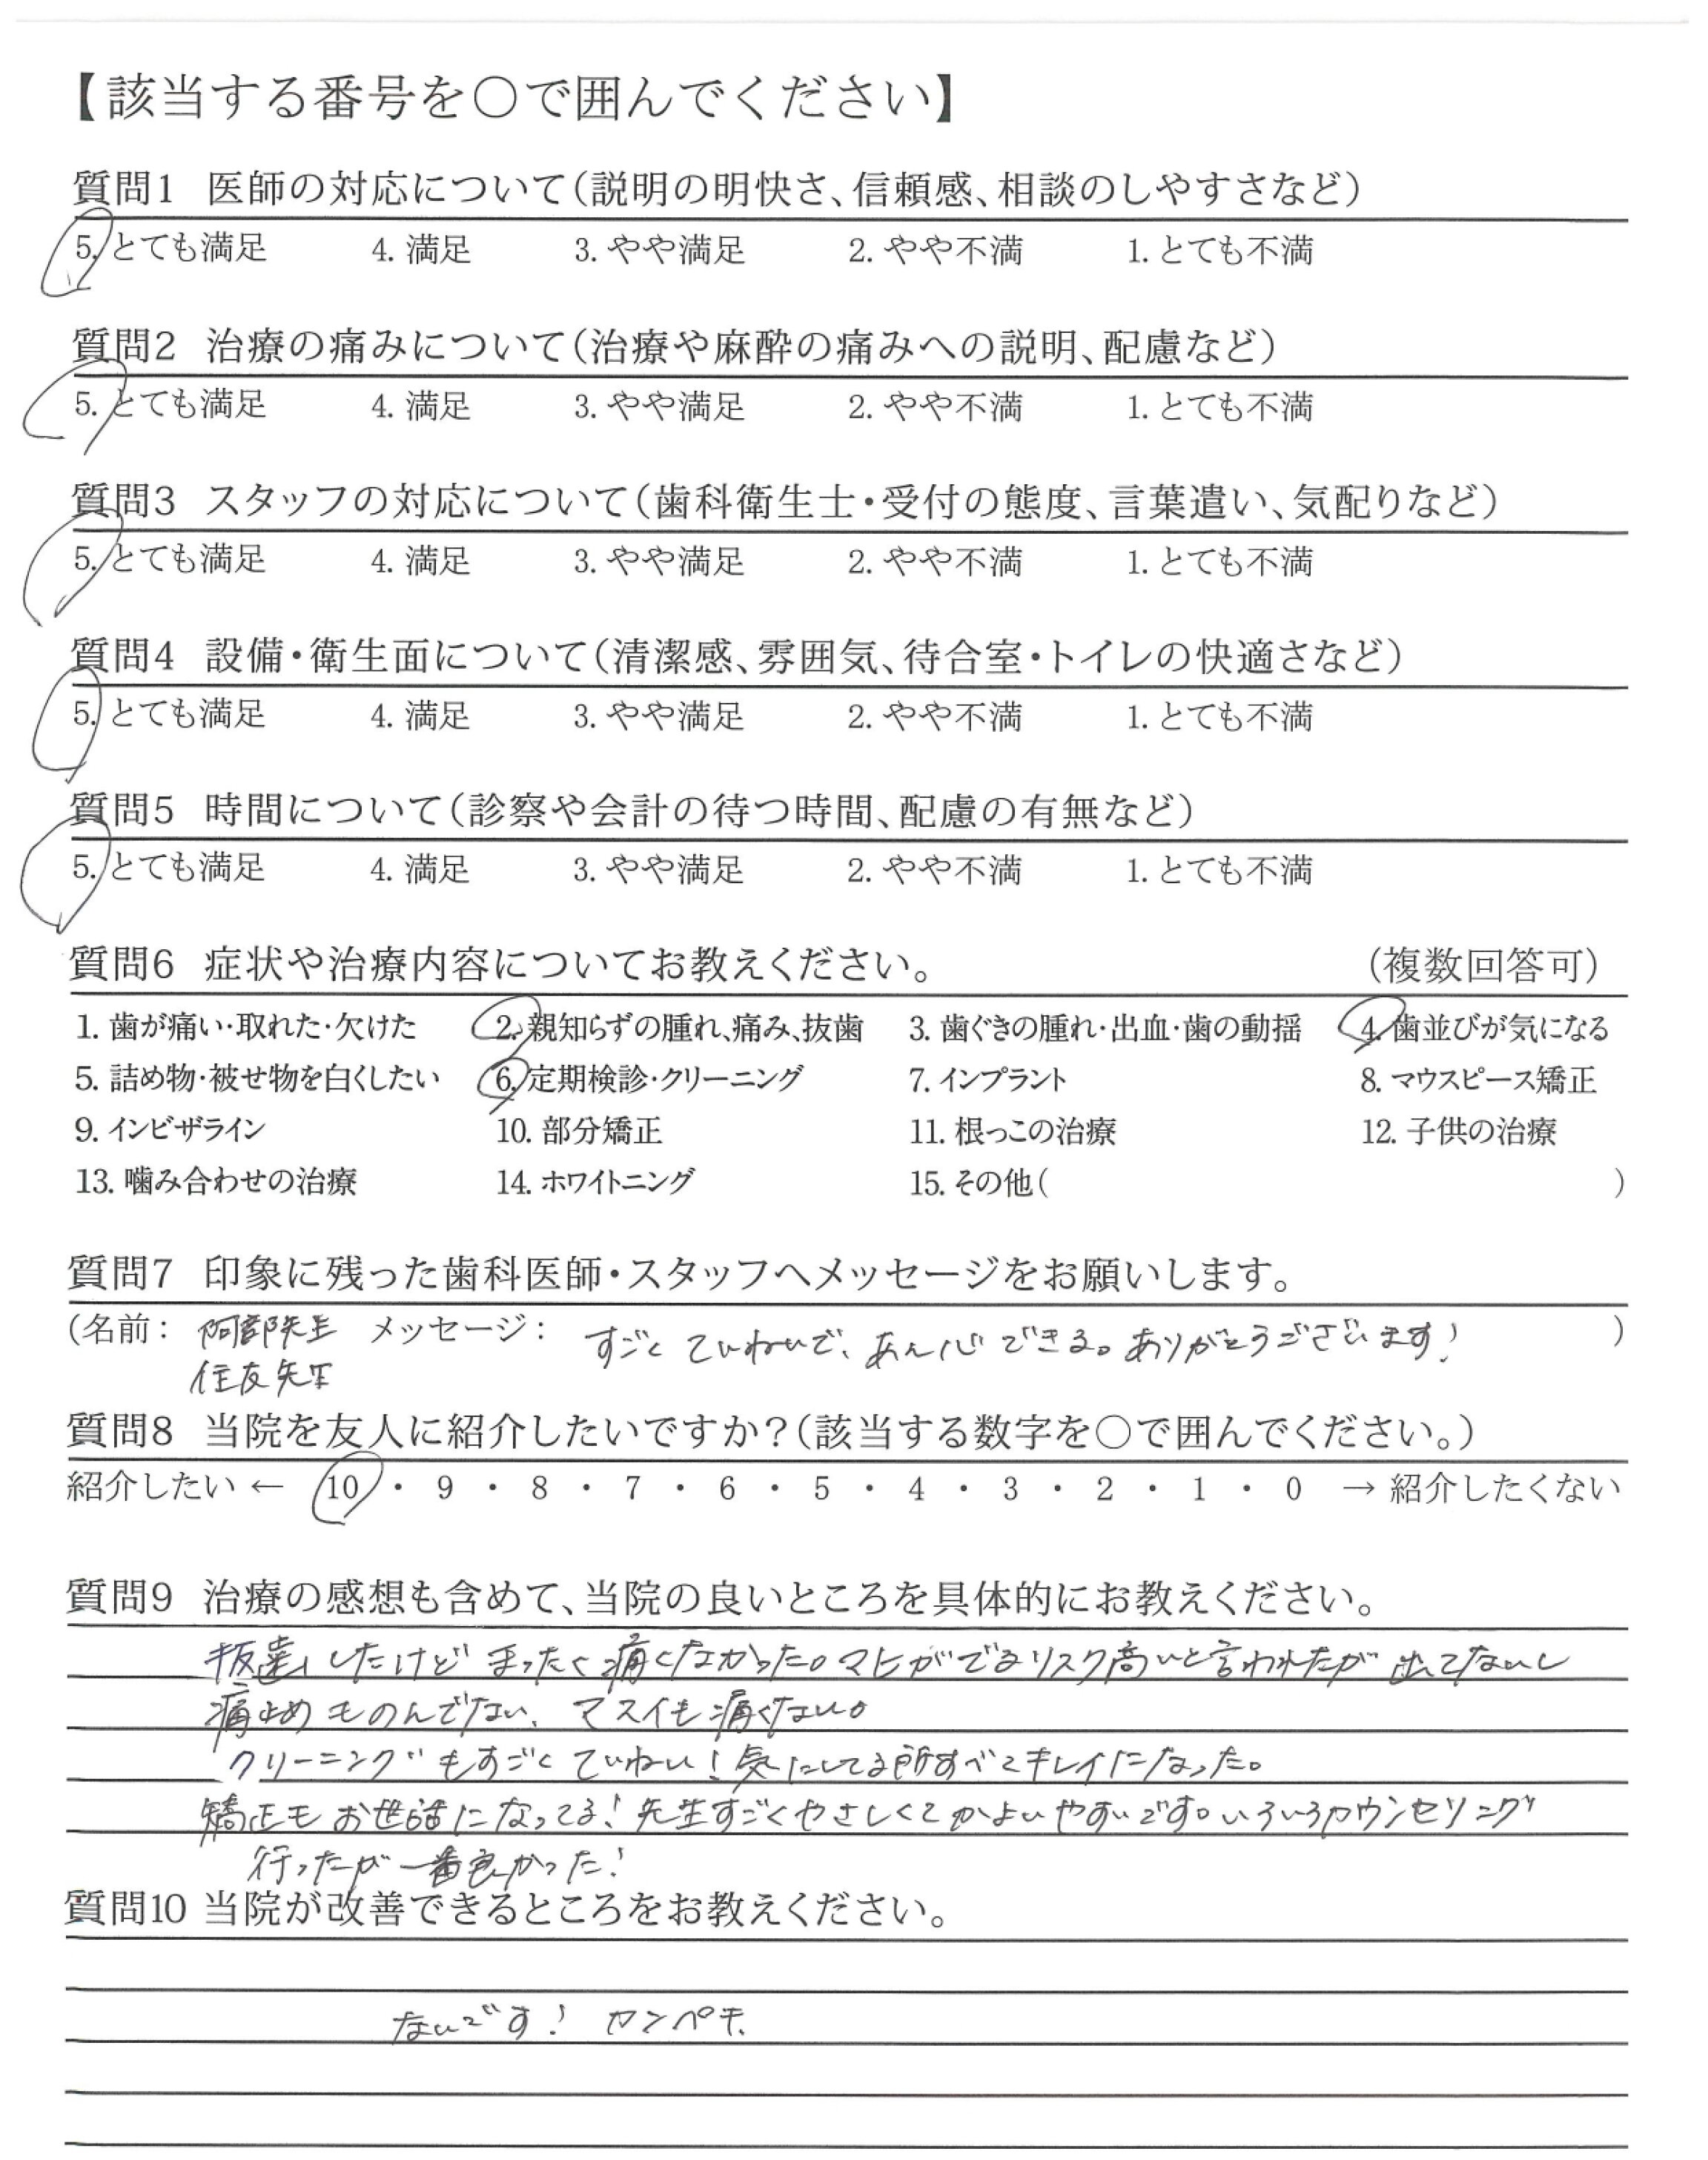 【該当する番号を〇で囲んでください】
質問1 医師の対応について(説明の明快さ、信頼感、相談のしやすさなど)
5. とても満足 4. 満足 3. やや満足 2. やや不満 1. とても不満
質問2 治療の痛みについて(治療や麻酔の痛みへの説明、配慮など)
5. とても満足 4. 満足 3. やや満足 2. やや不満 1. とても不満
質問3 スタッフの対応について(歯科衛生士・受付の態度、言葉遣い、気配りなど)
5. とても満足 4. 満足 3. やや満足 2. やや不満 1. とても不満
質問4 設備・衛生面について(清潔感、雰囲気、待合室・トイレの快適さなど)
5. とても満足 4. 満足 3. やや満足 2. やや不満 1. とても不満
質問5 時間について(診察や会計の待つ時間、配慮の有無など)
5. とても満足 4. 満足 3. やや満足 2. やや不満 1. とても不満
質問6 症状や治療内容についてお教えください。 (複数回答可)
1. 歯が痛い・取れた・欠けた 2. 親知らずの腫れ、痛み、抜歯 3. 歯ぐきの腫れ・出血・歯の動揺 4. 歯並びが気になる
5. 詰め物・被せ物を白くしたい 6. 定期検診・クリーニング 7. インプラント 8. マウスピース矯正
9. インビザライン 10. 部分矯正 11. 根っこの治療 12. 子供の治療
13. 噛み合わせの治療 14. ホワイトニング 15. その他( )
質問7 印象に残った歯科医師・スタッフへメッセージをお願いします。
(名前: 阿部先生 メッセージ: すごくていねいで、あん心できる。ありがとうございます! )
住友先生
質問8 当院を友人に紹介したいですか?(該当する数字を〇で囲んでください。)
紹介したい ← 10 ・ 9 ・ 8 ・ 7 ・ 6 ・ 5 ・ 4 ・ 3 ・ 2 ・ 1 ・ 0 → 紹介したくない
質問9 治療の感想も含めて、当院の良いところを具体的にお教えください。
抜歯したけどまったく痛くなかった。マヒがでるリスク高いと言われたが出てないし
痛止めものんでない、マスイも痛くない。
クリーニングもすごくていねい!気にしてる所すべてキレイになった。
矯正もお世話になってる!先生すごくやさしくてかよいやすいです。いろいろカウンセリング
行ったが一番良かった!
質問10 当院が改善できるところをお教えください。
ないです! カンペキ